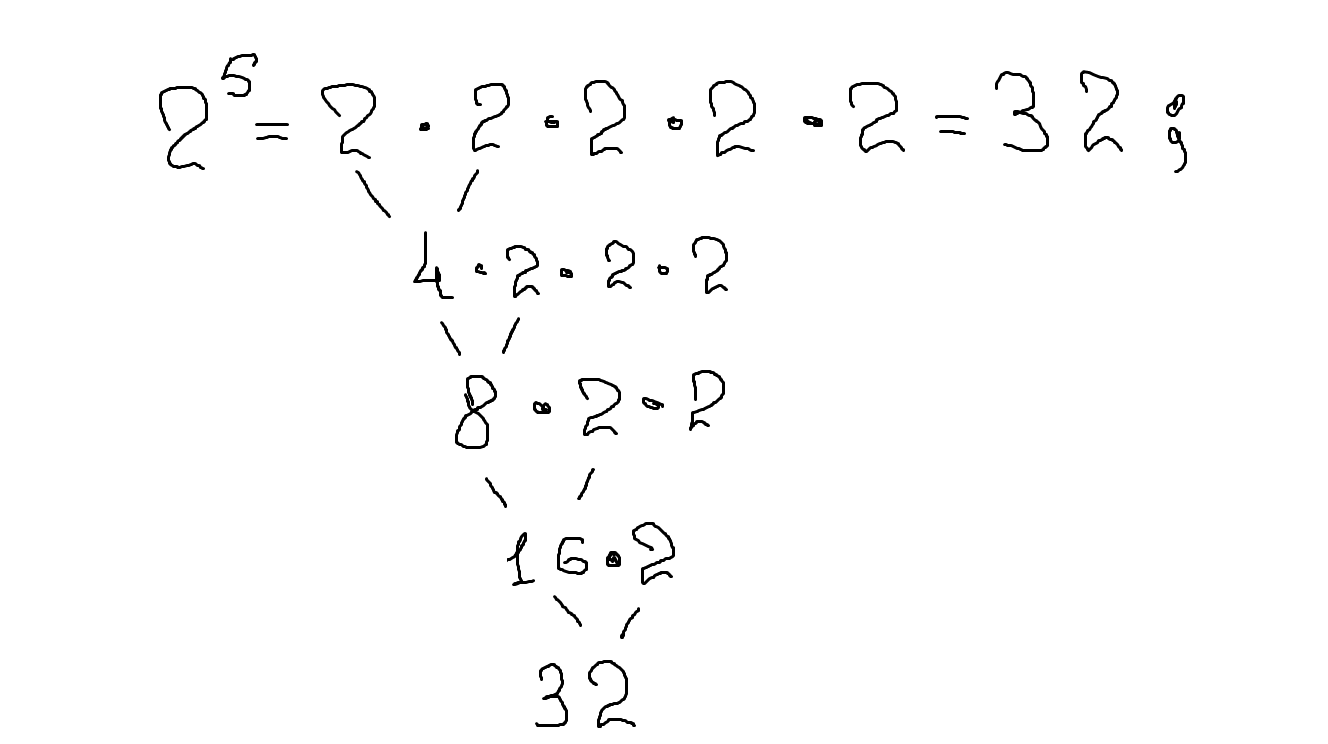 2⁵ = 2 · 2 · 2 · 2 · 2 = 32 ;
4 · 2 · 2 · 2
8 · 2 · 2
16 · 2
32